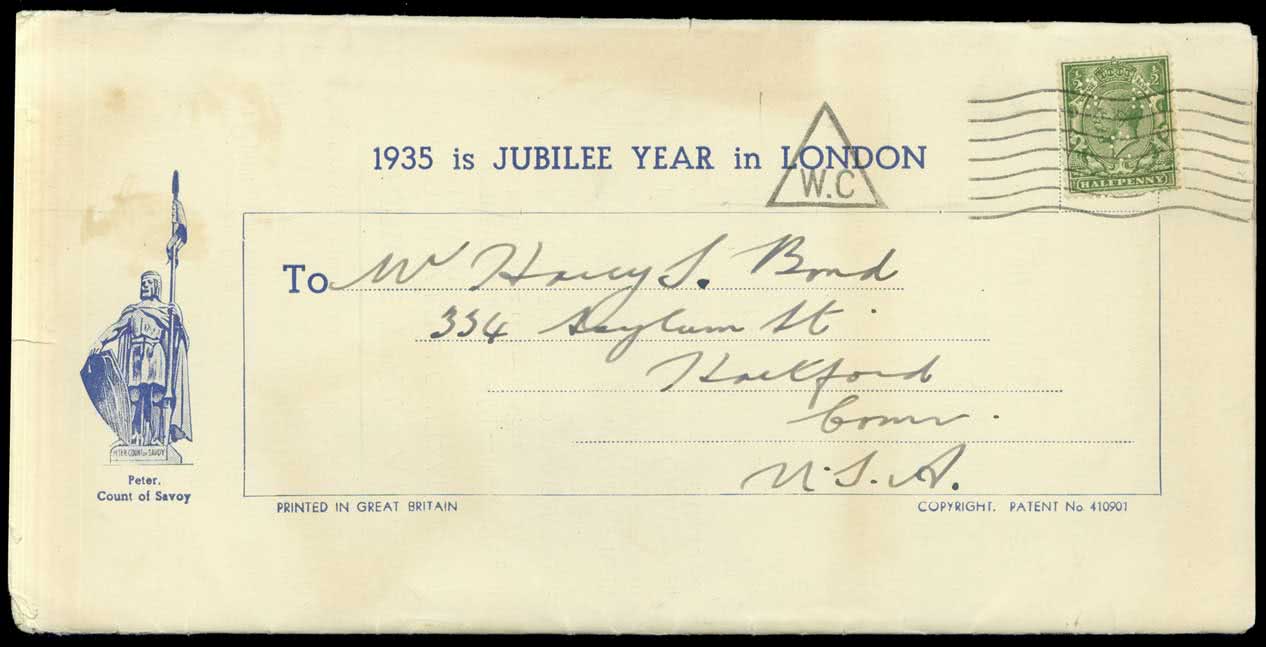 1935 is JUBILEE YEAR in LONDON
W.C
½ ½
HALFPENNY
To Mr Harry S. Bond
334 Asylum St
Hartford
Conn.
U.S.A.
PETER COUNT OF SAVOY
Peter,
Count of Savoy
PRINTED IN GREAT BRITAIN
COPYRIGHT. PATENT No 410901